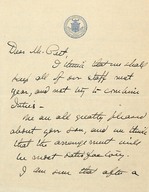 Dear Mr. Peet,
I think that we shall
keep all of our staff next
year, and not try to combine
duties.
We are all greatly pleased
about your son, and we think
that the arrangement will
be most satisfactory.
I am sure that after a